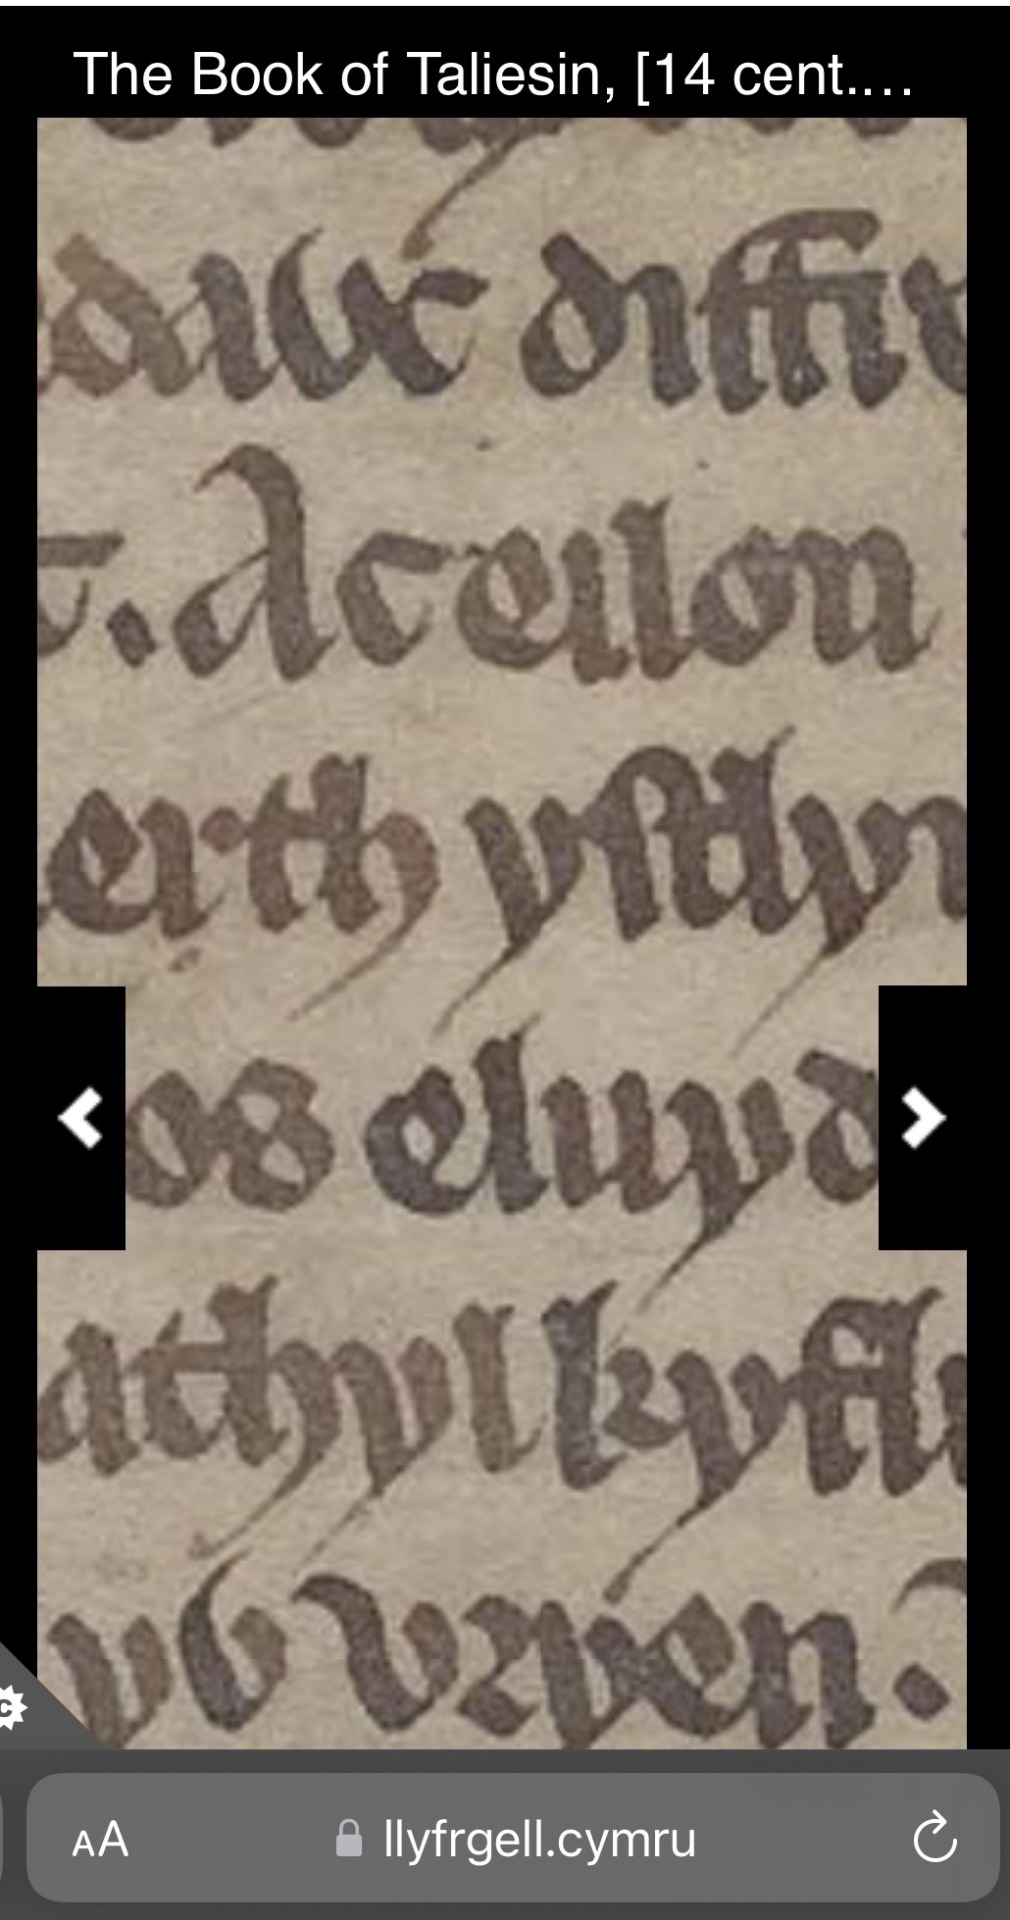 The Book of Taliesin, [14 cent.…
diffi
. Ac eilon
erth yſtlyn
os eluyd
athyl kyſtl
vryen.
AA llyfrgell.cymru